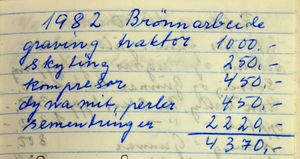 1982 Brönnarbeide
graving traktor 1000.-
skyting 250.-
kompresor 450.-
dynamit, perler 450.-
sementringer 2220.-
4370.-